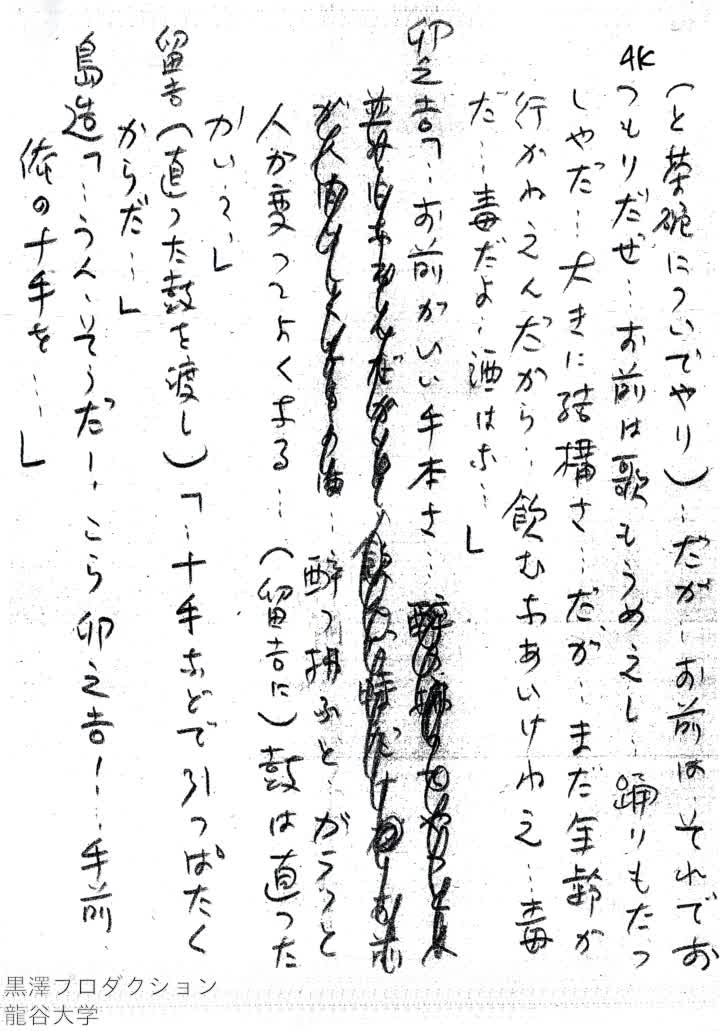 (と茶碗についでやり)…だが…お前は…それでお
4K
つもりだぜ…お前は歌もうめえし…踊りもたつ
しやだ…大きに結構さ…だが…まだ年齢が
行かねえんだから…飲むなあいけねえ…毒
だ…毒だよ…酒はな…」
卯之吉「…お前がいい手本さ…
…酔つ払ふと…がらつと
人が変つてよくなる…(留吉に)鼓は直つた
かい?…」
留吉(直つた鼓を渡し)「…十手などで引つぱたく
からだ…」
島造「…うん…そうだ!…こら卯之吉!…手前
俺の十手を…」
黒澤プロダクション
龍谷大学